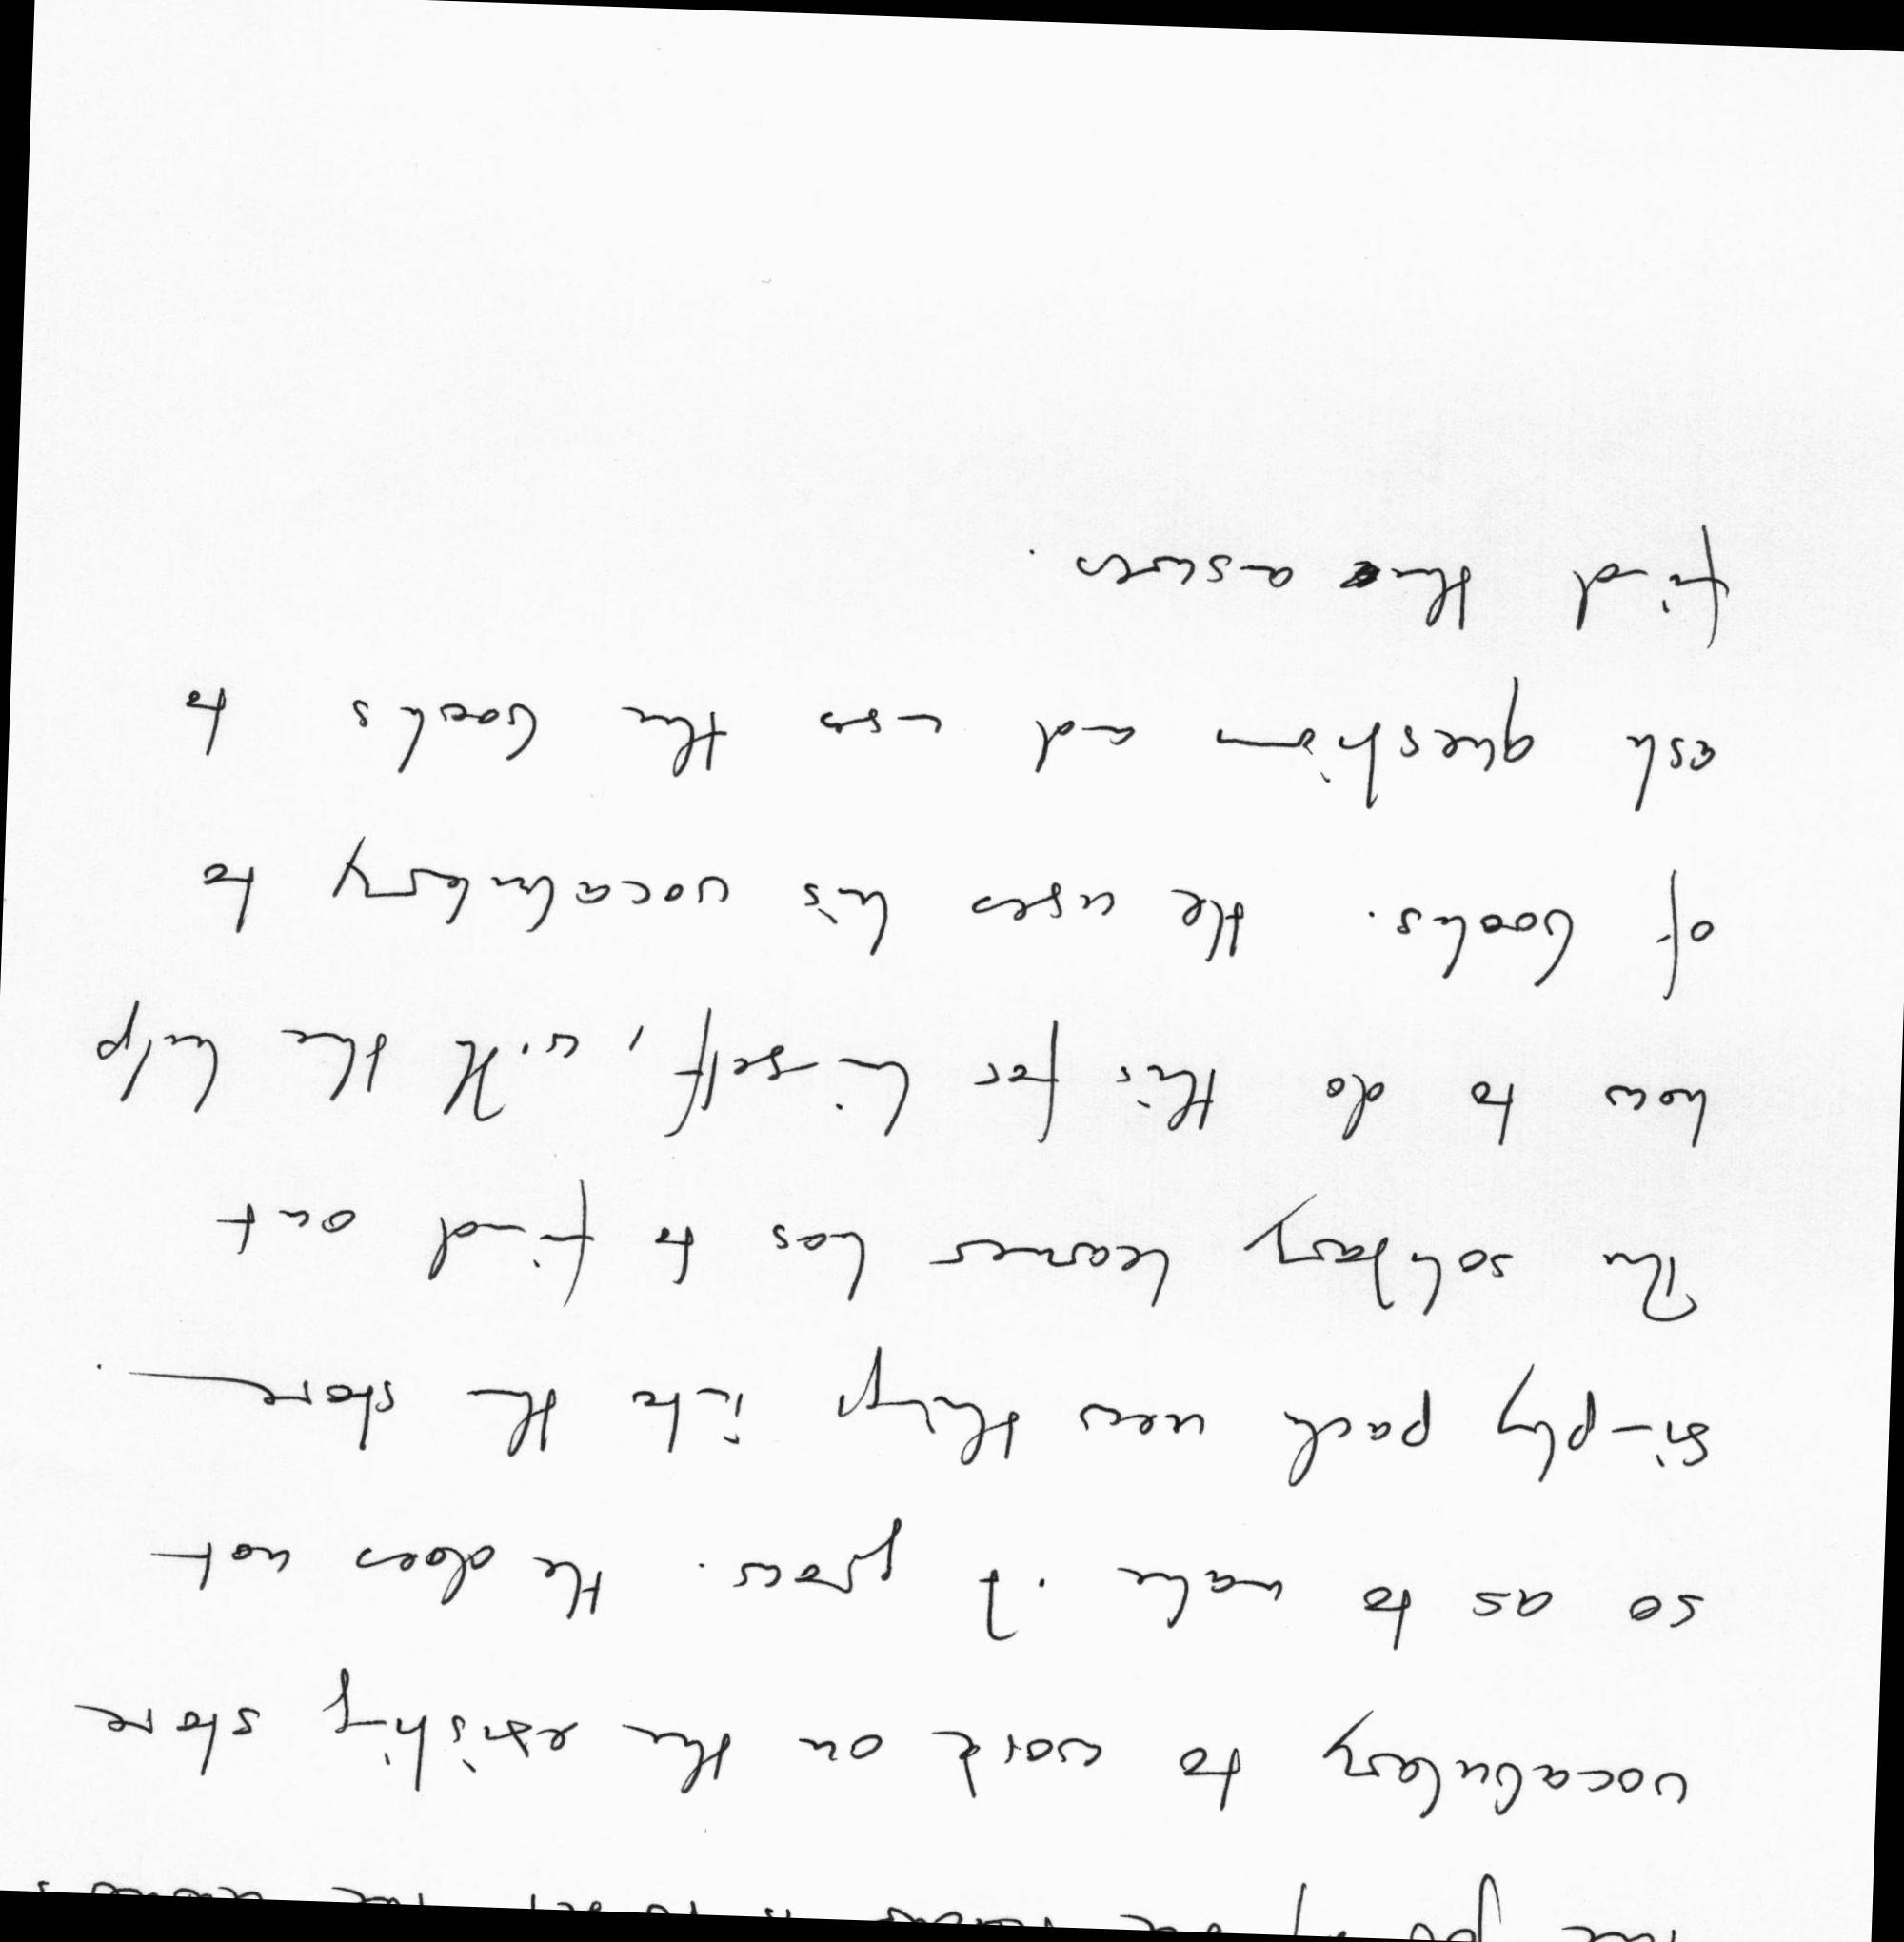 vocabulary to work on the existing store
so as to make it grow. He does not
simply pack new things into the store.
The solitary learner has to find out
how to do this for himself, with the help
of books. He uses his vocabulary to
ask questions and uses the books to
find the answers.